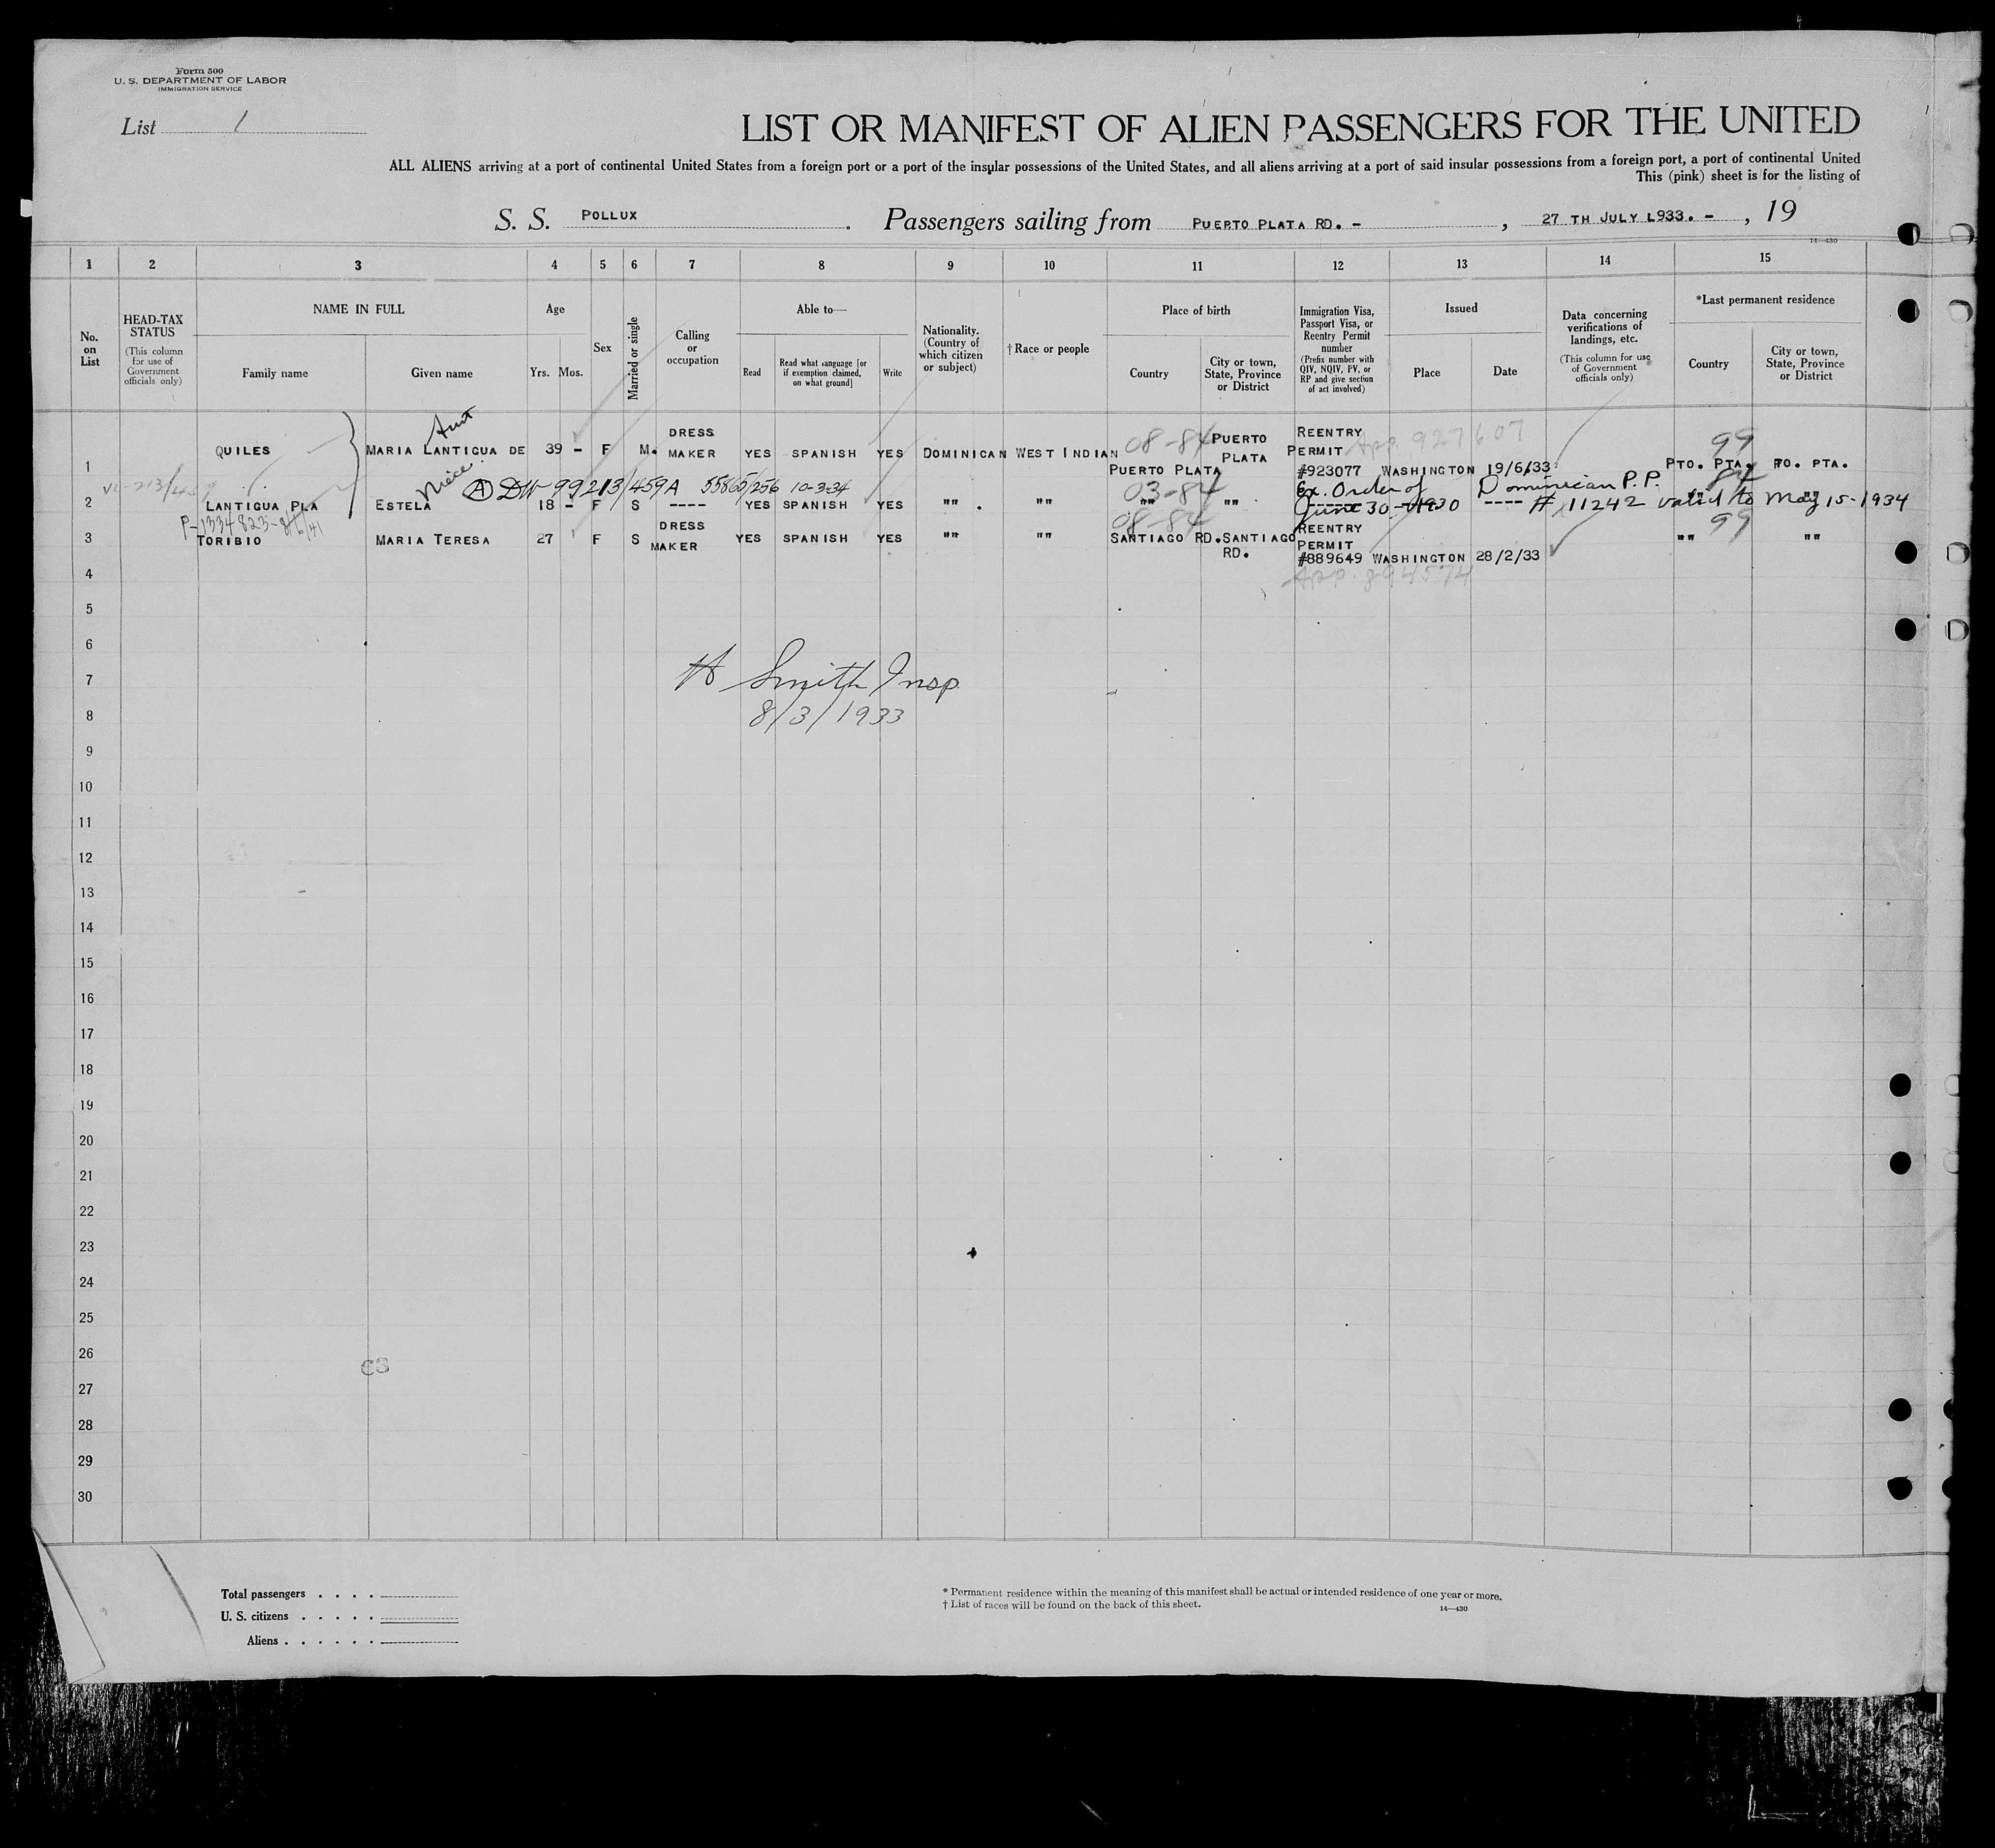 Form 500
U. S. DEPARTMENT OF LABOR
IMMIGRATION SERVICE
List 1
LIST OR MANIFEST OF ALIEN PASSENGERS FOR THE UNITED
ALL ALIENS arriving at a port of continental United States from a foreign port or a port of the insular possessions of the United States, and all aliens arriving at a port of said insular possessions from a foreign port, a port of continental United
This (pink) sheet is for the listing of
S. S. POLLUX . Passengers sailing from PUERTO PLATA RD. - , 27 TH JULY L933. - , 19
14—430
1 2 3 4 5 6 7 8 9 10 11 12 13 14 15
No. on List
HEAD-TAX STATUS (This column for use of Government officials only)
NAME IN FULL
Family name Given name
Age
Yrs. Mos.
Sex
Married or single
Calling or occupation
Able to—
Read Read what language [or if exemption claimed, on what ground] Write
Nationality. (Country of which citizen or subject)
† Race or people
Place of birth
Country City or town, State, Province or District
Immigration Visa, Passport Visa, or Reentry Permit number (Prefix number with QIV, NQIV, PV, or RP and give section of act involved)
Issued
Place Date
Data concerning verifications of landings, etc. (This column for use of Government officials only)
*Last permanent residence
Country City or town, State, Province or District
Aunt
1 QUILES MARIA LANTIGUA DE 39 - F M. DRESS MAKER YES SPANISH YES DOMINICAN WEST INDIAN 08-84 PUERTO PLATA PUERTO PLATA REENTRY PERMIT #923077 App. 927607 WASHINGTON 19/6/33 99 PTO. PTA. PO. PTA.
Niece
(A) DW 99213/459A 55865/256 10-3-34
2 LANTIGUA PLA ESTELA 18 - F S ---- YES SPANISH YES "" . "" 03-84 "" "" Ex. Order of June 30-1930 ---- Dominican P.P. # 11242 valid to May 15-1934 84 "" ""
P-1334823-
3 TORIBIO MARIA TERESA 27 F S DRESS MAKER YES SPANISH YES "" "" 08-84 SANTIAGO RD. SANTIAGO RD. REENTRY PERMIT #889649 WASHINGTON 28/2/33 99 "" ""
App. 894574
4
5
6
7
H Smith Insp
8
8/3/1933
9
10
11
12
13
14
15
16
17
18
19
20
21
22
23
24
25
26
27
28
29
30
Total passengers . . . .
U. S. citizens . . . . .
Aliens . . . . . .
* Permanent residence within the meaning of this manifest shall be actual or intended residence of one year or more.
† List of races will be found on the back of this sheet.
14—430